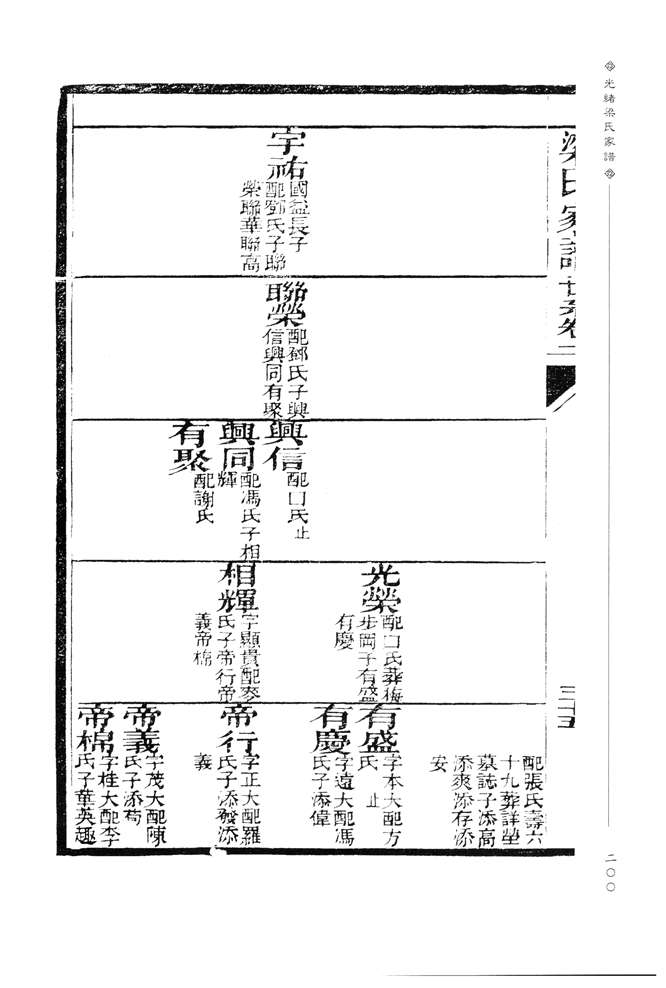 光緒梁氏家譜
二〇〇
梁氏家譜世系卷二
三十五
宇祐
國益長子
配鄧氏子聯
榮聯華聯高
聯榮
配鄧氏子興
信興同有聚
興信
配口氏止
興同
配馮氏子相
輝
有聚
配謝氏
光榮
配口氏葬梅
步岡子有盛
有慶
相輝
字顯貴配麥
氏子帝行帝
義帝棉
配張氏壽六
十九葬詳塋
墓誌子添高
添爽添存添
安
有盛
字本大配方
氏止
有慶
字遠大配馮
氏子添偉
帝行
字正大配羅
氏子添發添
義
帝義
字茂大配陳
氏子添萄
帝棉
字桂大配李
氏子華英趣